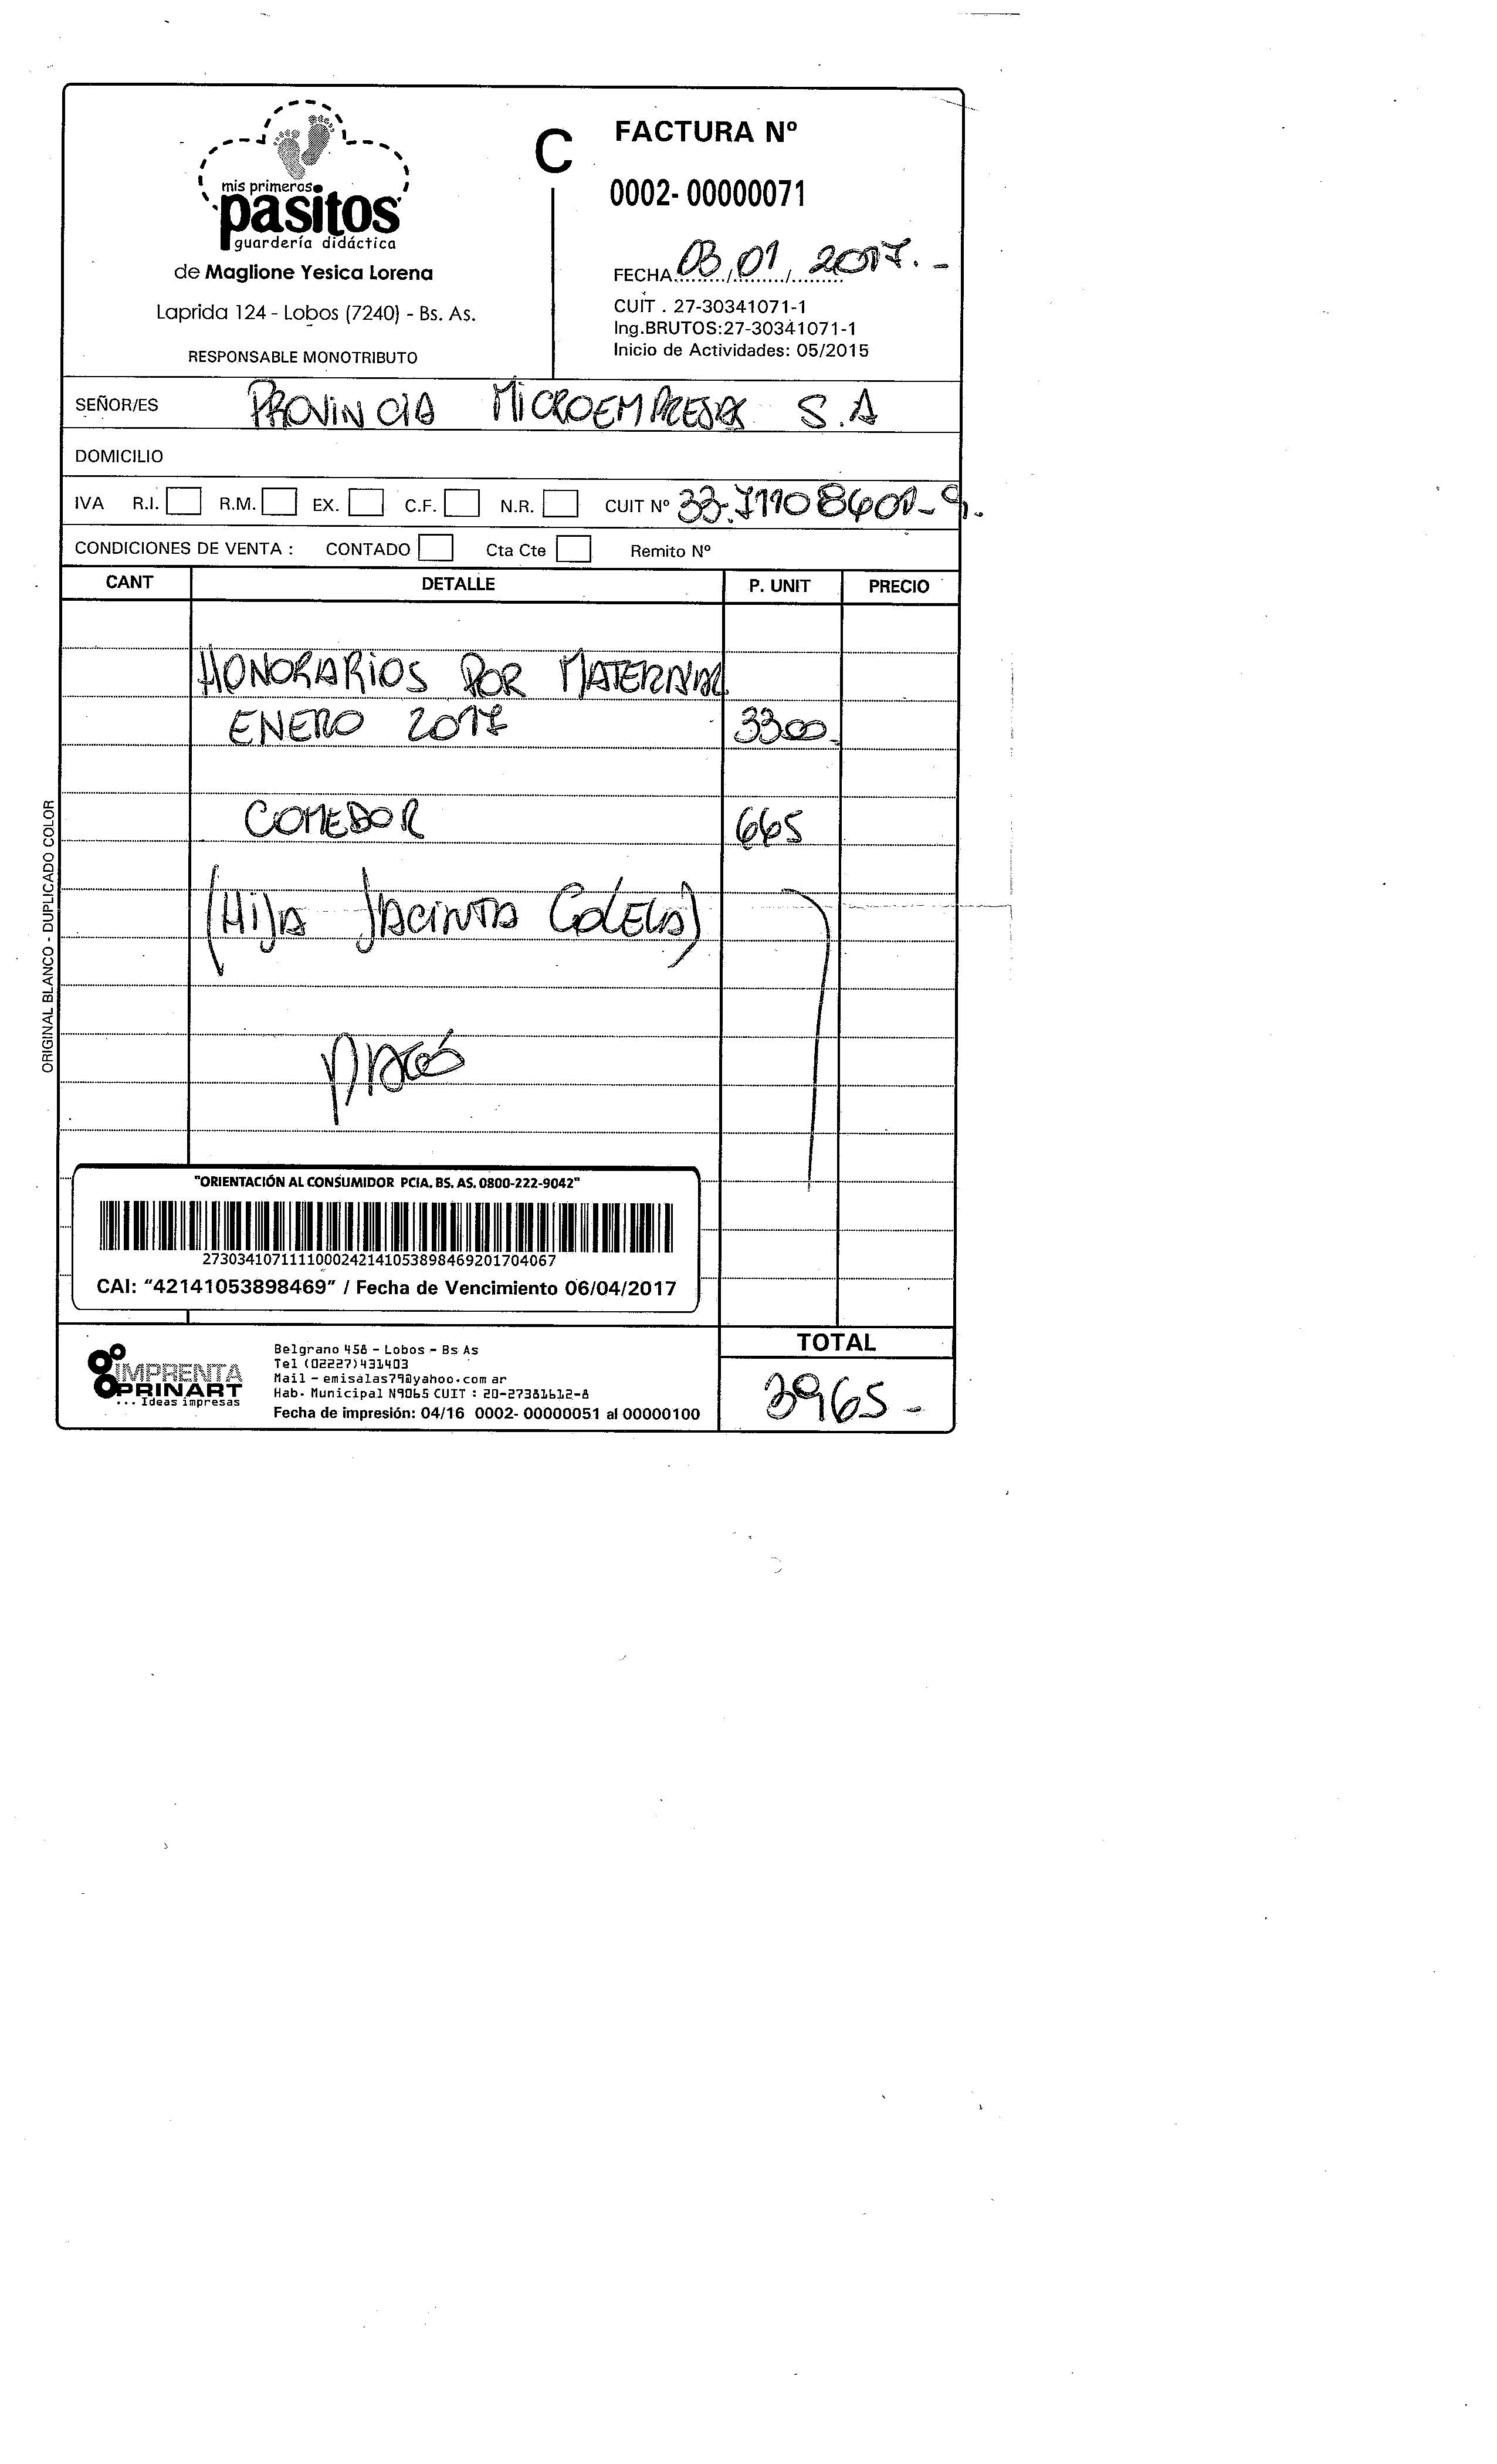 mis primeros
pasitos
guardería didáctica
de Maglione Yesica Lorena
Laprida 124 - Lobos (7240) - Bs. As.
RESPONSABLE MONOTRIBUTO
C
FACTURA Nº
0002- 00000071
FECHA 03/01/2017.-
CUIT . 27-30341071-1
Ing.BRUTOS:27-30341071-1
Inicio de Actividades: 05/2015
SEÑOR/ES PROVINCIA MICROEMPRESAS S.A
DOMICILIO
IVA R.I. R.M. EX. C.F. N.R. CUIT Nº 33-71108401-9.
CONDICIONES DE VENTA : CONTADO Cta Cte Remito Nº
CANT DETALLE P. UNIT PRECIO
HONORARIOS POR MATERNAL
ENERO 2017 3300.
COMEDOR 665
(HIJA JACINTA
ORIGINAL BLANCO - DUPLICADO COLOR
"ORIENTACIÓN AL CONSUMIDOR PCIA. BS. AS. 0800-222-9042"
2730341071111000242141053898469201704067
CAI: "42141053898469" / Fecha de Vencimiento 06/04/2017
IMPRENTA
PRINART
... Ideas impresas
Belgrano 458 - Lobos - Bs As
Tel (02227)431403
Mail - emisalas79@yahoo.com ar
Hab. Municipal N9065 CUIT : 20-27381612-8
Fecha de impresión: 04/16 0002- 00000051 al 00000100
TOTAL
3965-